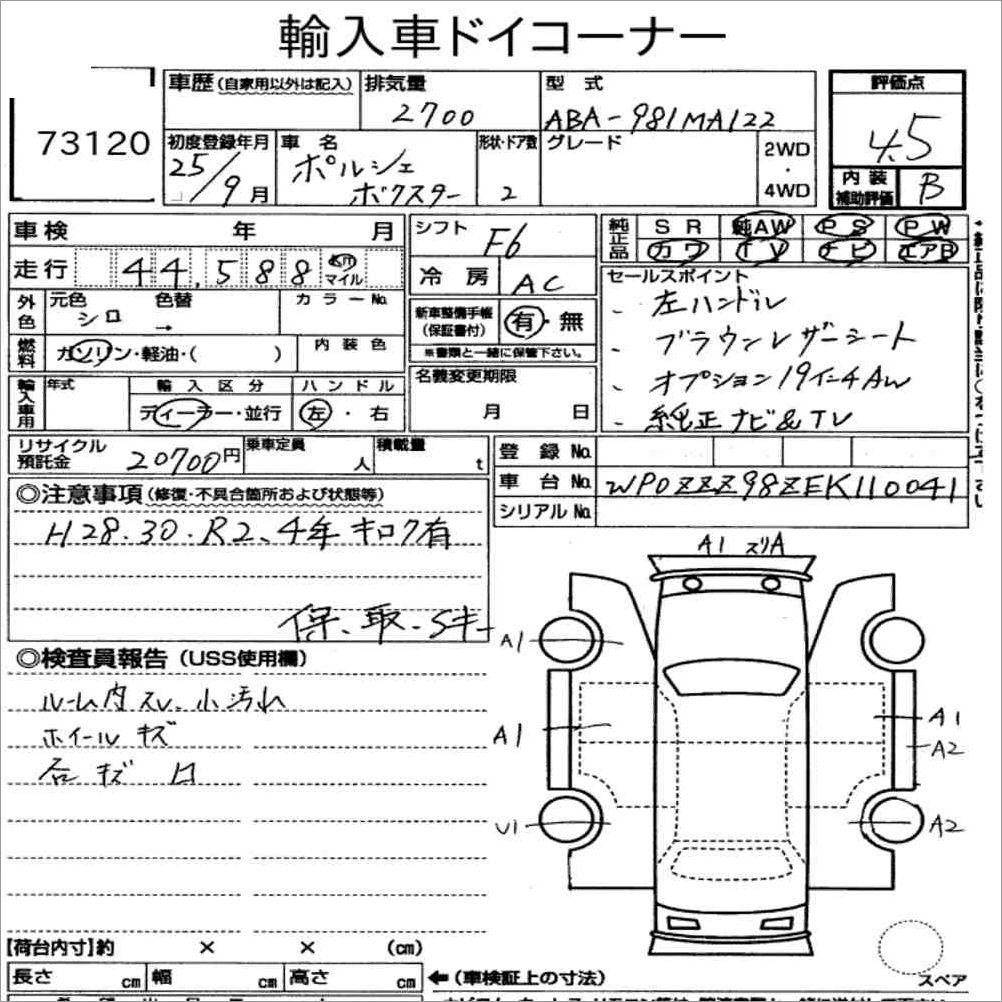 輸入車ドイコーナー
73120
車歴(自家用以外は記入) 排気量 型 式 評価点
2700 ABA-981MA122 4.5
初度登録年月 車 名 形状・ドア数 グレード 2WD・4WD
25/9月 ポルシェ ボクスター 2
内装補助評価 B
車検 年 月 シフト F6 純正品 SR 純AW PS PW
走行 44,588 Km マイル 冷房 AC カワ TV ナビ エアB
外色 元色 色替 カラーNo. 新車整備手帳(保証書付) 有・無
シロ →
※書類と一緒に保管下さい。
燃料 ガソリン・軽油・( ) 内装色
輸入車用 年式 輸入区分 ハンドル 名義変更期限
ディーラー・並行 左・右 月 日
セールスポイント
、左ハンドル
、ブラウンレザーシート
、オプション19インチAW
、純正ナビ&TV
リサイクル預託金 20700円 乗車定員 人 積載量 t
登録No.
車台No. WP0ZZZ98ZEK110041
シリアルNo.
◎注意事項(修復・不具合箇所および状態等)
H28.30.R2、4年 キロク有
保、取、Sキー
◎検査員報告(USS使用欄)
ルーム内スレ、小汚れ
ホイールキズ
石キズ
A1 スリA
A1
A1 A1
A2
U1 A2
【荷台内寸】約 × × (cm)
長さ cm 幅 cm 高さ cm ←(車検証上の寸法)
スペア